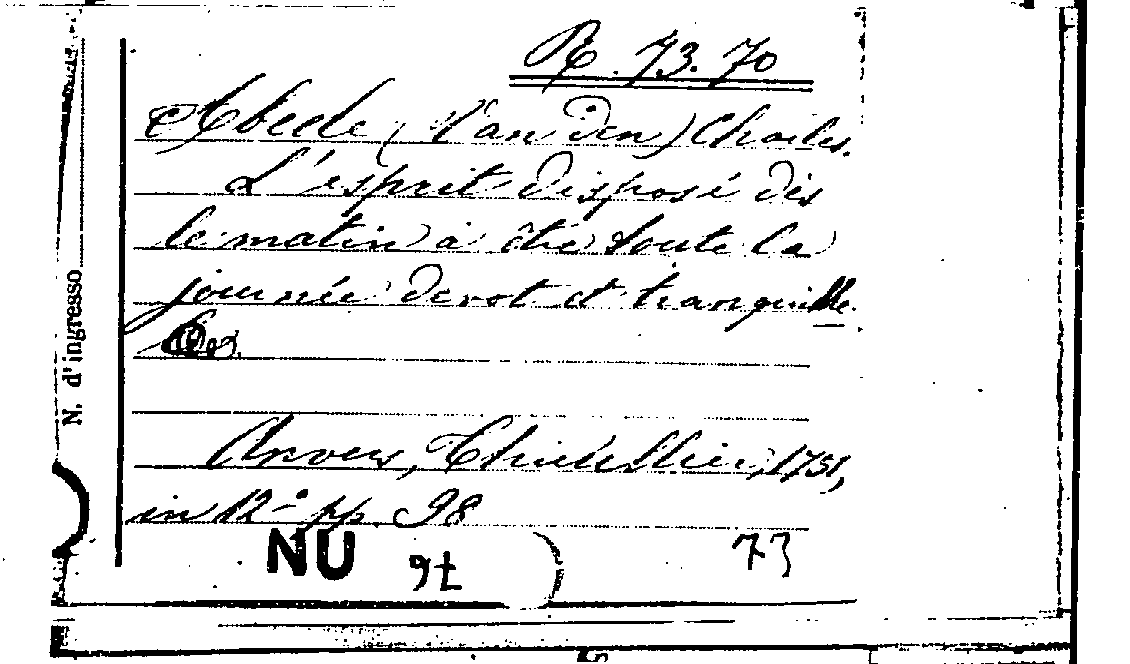 R. 73. 70
Abeele (Van den) Charles.
L'esprit disposé dès
le matin à être toute la
journée devot et tranquille.
Anvers, 1751,
in 12° pp. 98
NU 73
N. d'ingresso